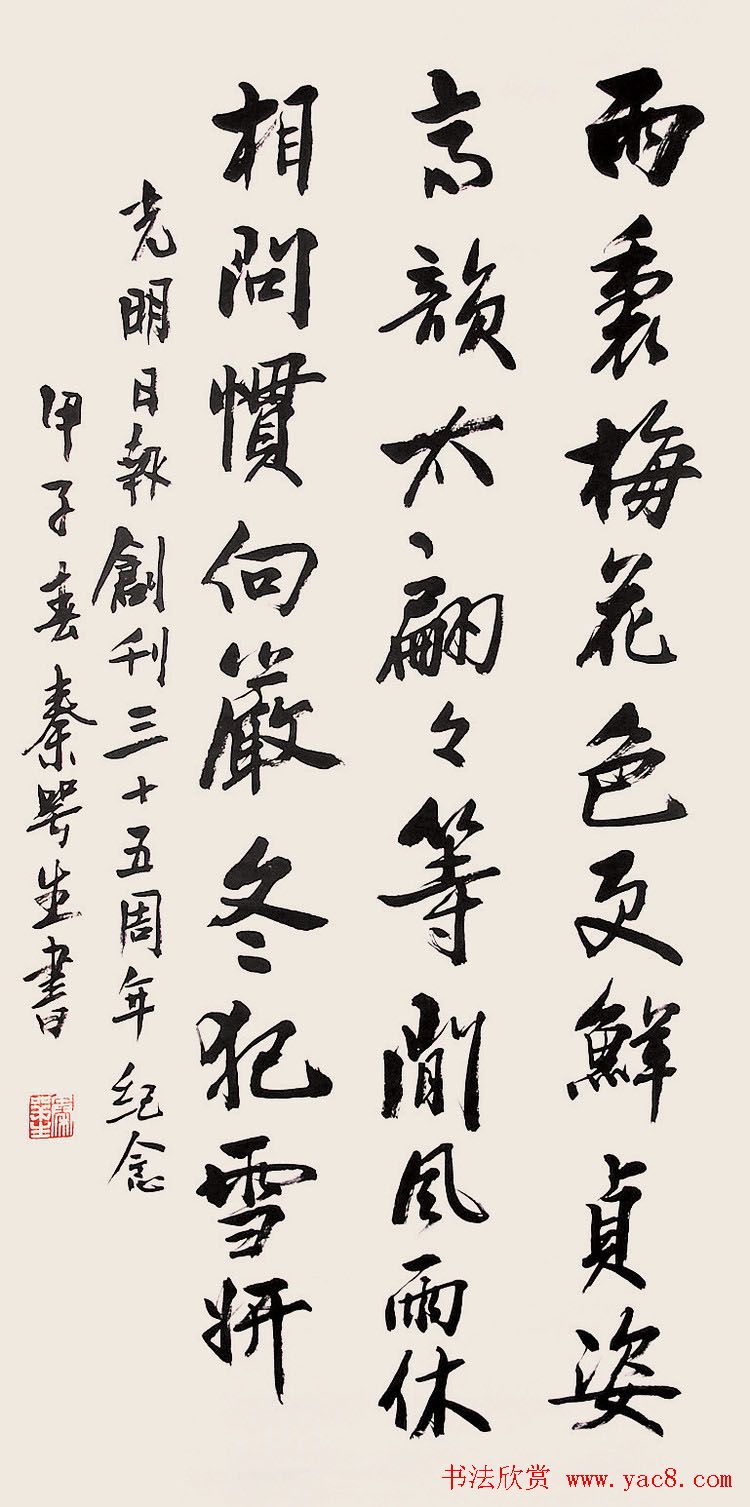 雨裏梅花色更鮮貞姿
高韻太翩々等閒風雨休
相問慣向嚴冬犯雪妍
光明日報創刊三十五周年紀念
甲子春秦咢生書
秦咢生
书法欣赏 www.yac8.com